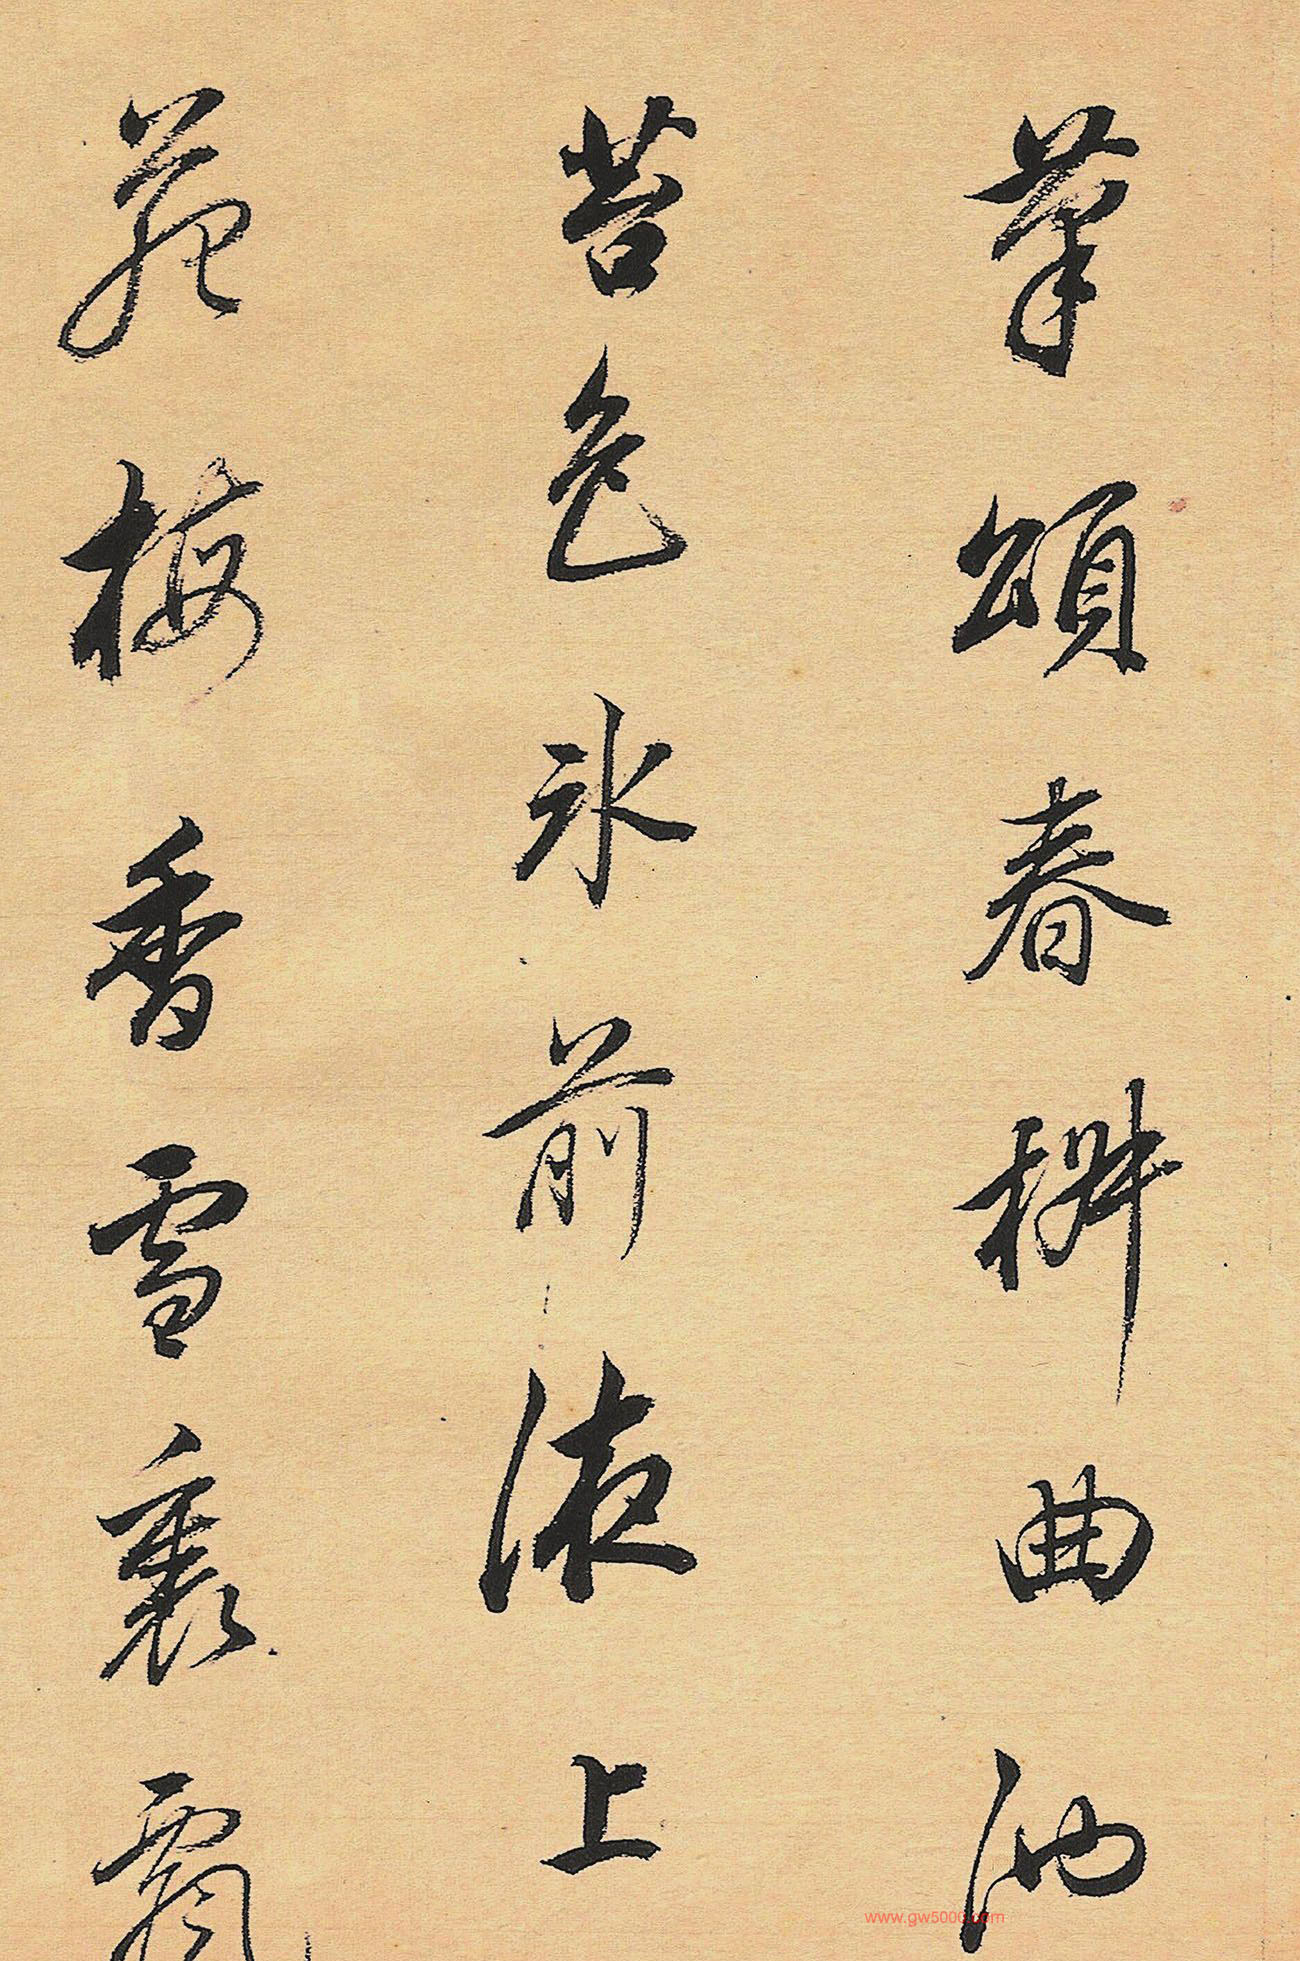 筆頌春椒曲池
苔色冰前液上
苑梅香雪裏
www.gw5000.com